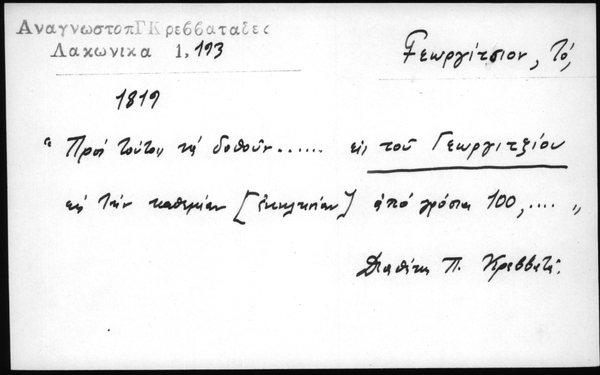 ΑναγνωστοπΓΚρεββαταδες
Λακωνικα 1,193
Γεωργίτσιον, Τό,
1819
"Πρός τούτοις νά δοθοῦν...... εις τοῦ Γεωργιτζίου
εις τήν καθεμίαν [ἐκκλησίαν] ἀπό γρόσια 100,.... "
Διαθήκη Π. Κρεββατᾶ.